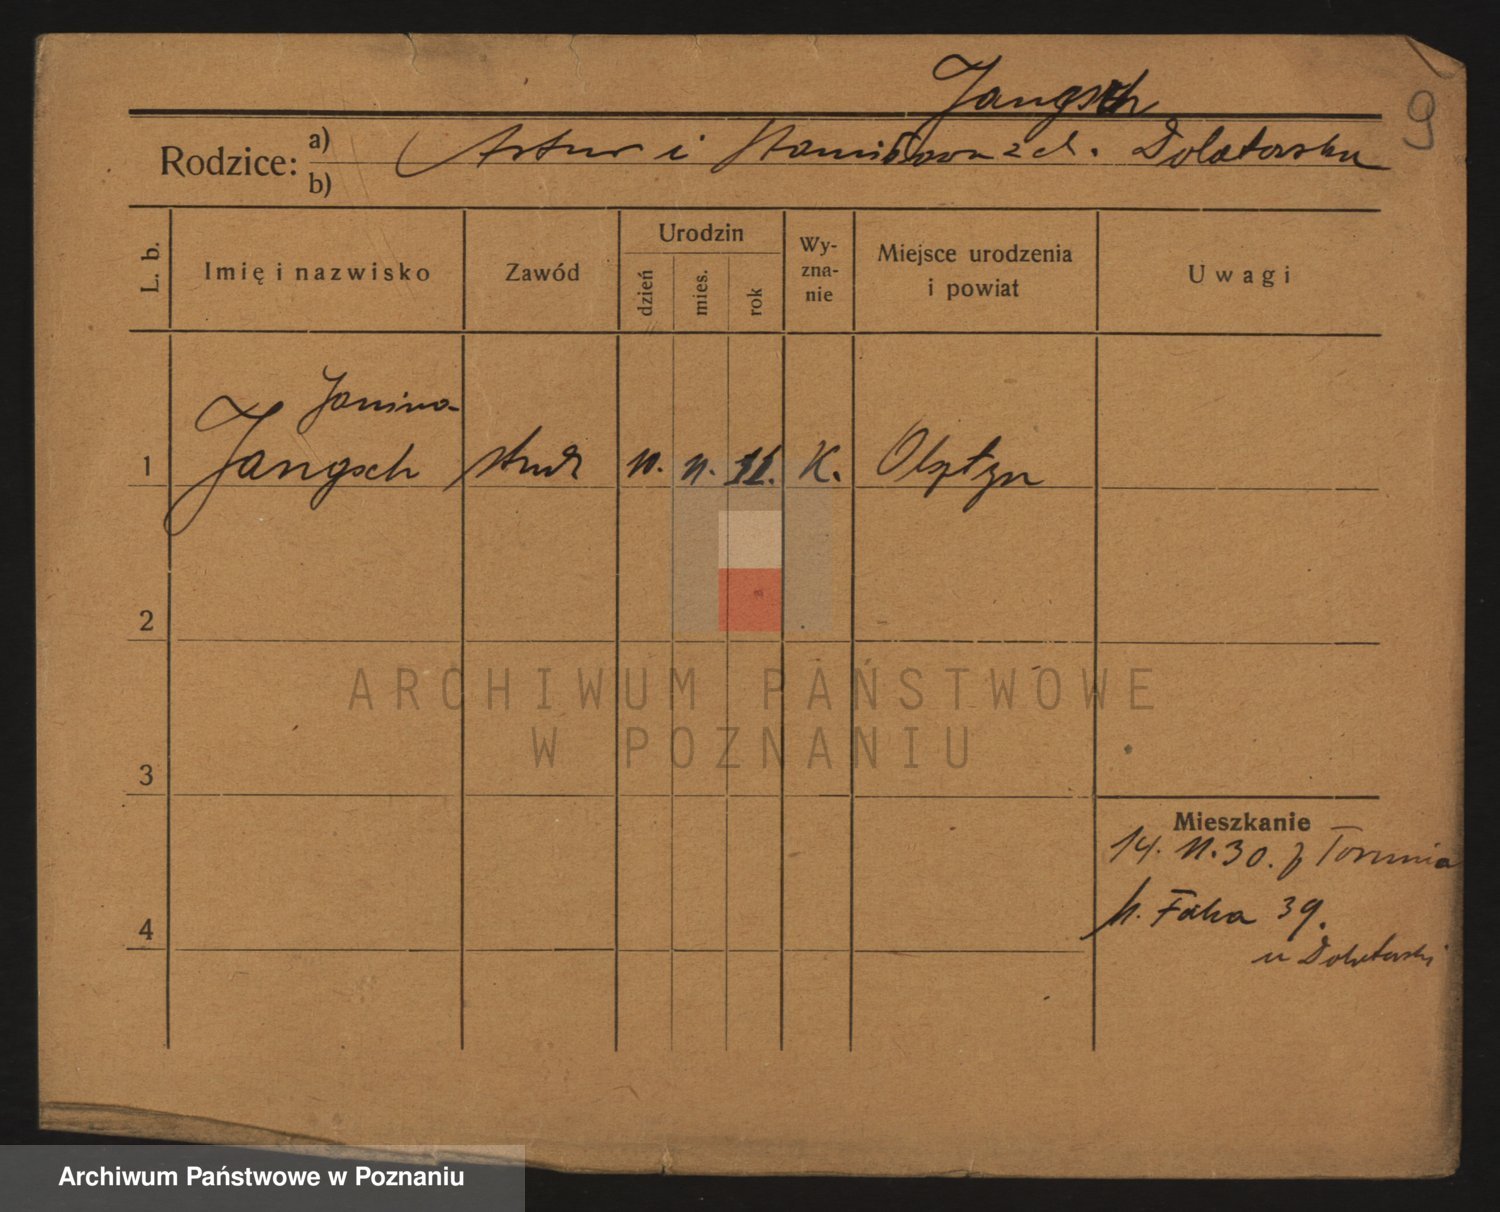 Jangsch
9
Rodzice: a) Artur i Stanisława z d. Dolatowska
b)
L. b.
Imię i nazwisko
Zawód
Urodzin
dzień
mies.
rok
Wy-
zna-
nie
Miejsce urodzenia
i powiat
Uwagi
Janina
1 Jangsch stud. 11. 11. K. Olsztyn
2
ARCHIWUM PAŃSTWOWE
W POZNANIU
3
Mieszkanie
14. 11. 30. z Torunia
39.
4
u Dolatowski
Archiwum Państwowe w Poznaniu